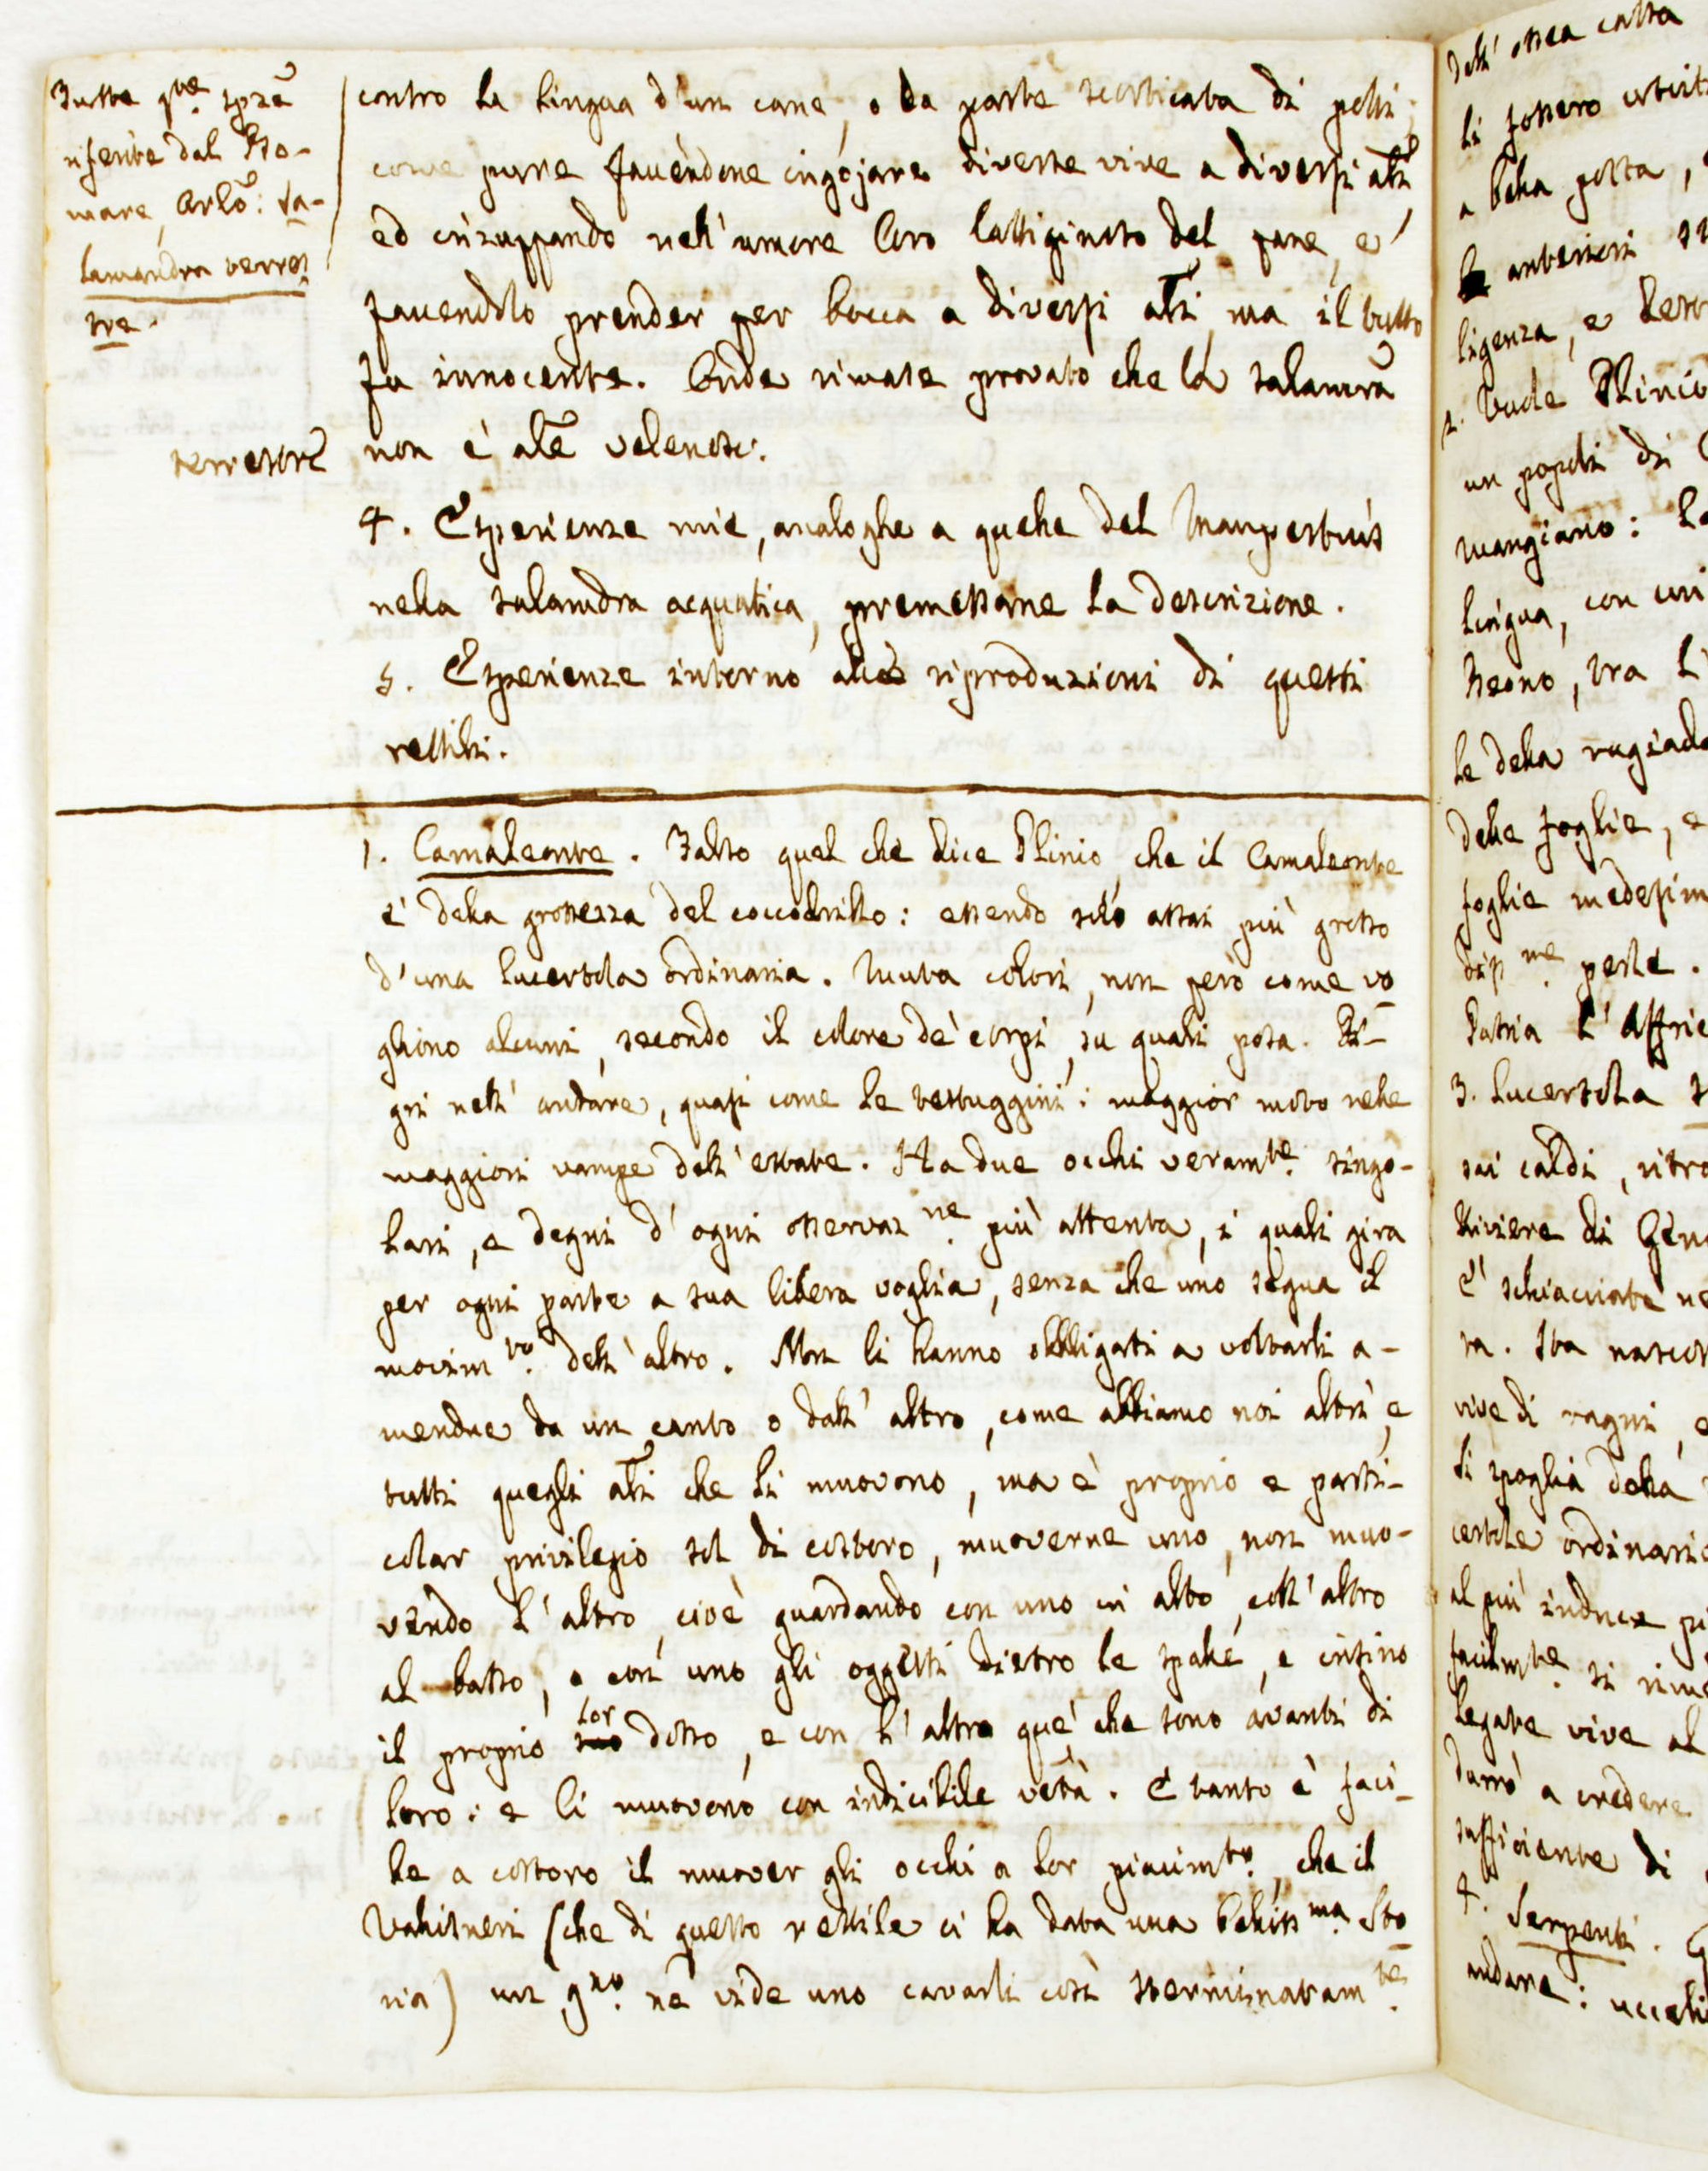 Tutte q.ste sp.ze
riferite dal Bo-
mare, Artlo: Sa-
lamandra terres
tre.
contro la lingua d'un cane, o la parte scorticata di polli;
come pure facendone ingojare diverse vive a diversi ali,
ed inzuppando nell'umore loro lattiginoso del pane, e
facendolo prender per bocca a diversi ali, ma il tutto
fu innocente. Onde rimase provato che la salamra
terrestre non è ale velenoso.
4. Esperienze mie, analoghe a quelle del Maupertuis
nella salamdra acquatica, premessane la descrizione.
5. Esperienze intorno alle riproduzioni di questi
rettili.
1. Camaleonte. Falso quel che dice Plinio, che il Camaleonte
è della grossezza del coccodrillo: essendo solo assai più grosso
d'una lucertola ordinaria. Muta colori, non però come vo
gliono alcuni, secondo il colore de' corpi, su quali posa. Pi-
gri nell'andare, quasi come le testuggini: maggior moto nelle
maggiori vampe dell'estate. Ha due occhi veram.te singo-
lari, e degni d'ogni osservaz.ne più attenta, i quali gira
per ogni parte a sua libera voglia, senza che uno segua il
movim.to dell'altro. Non li hanno obbligati a voltarli a-
mendue da un canto o dall'altro, come abbiamo noi altri, e
tutti quegli ali che li muovono, ma è proprio e parti-
colar privilegio sol di costoro, muoverne uno, non muo-
vendo l'altro, cioè guardando con uno in alto, coll'altro
al basso, e con uno gli oggetti dietro le spalle, e insino
il proprio lor dosso, e con l'altro que', che sono avanti di
loro: e li muovono con indicibile vetà. E tanto è faci-
le a costoro il muover gli occhi a lor piacim.to, che il
Vallisneri (che di questo rettile ci ha data una belliss.ma Sto
ria) un g.no ne vide uno cavarli così sterminatam.te
dell'
li fossero
a bella posta,
anteriori
ligenza, e
2. Vuole Plinio
un popoli di
mangiano:
lingua, con
tra l'
le della rugiada
delle foglie, e
foglie medesim
perle.
Patria l'Affric
3. Lucertola
sai caldi, ritro
Riviere di Gen
è schiacciata ne
ra. Sta nascos
vive di ragni, e
si spoglia della
certole ordinarie
al più induce
facilm.te si
legate vive al
durrò a credere
sufficiente di
4. Serpenti.
andare: uccelli